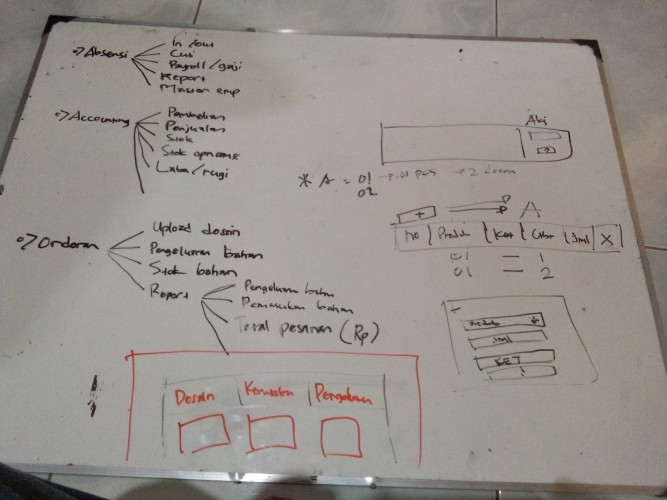 => Absensi
In / out
Cuti
Payroll / gaji
Report
Master emp
=> Accounting
Pembelian
Penjualan
Stok
Stok opname
Laba / rugi
=> Orderan
Upload desain
Pengeluaran bahan
Stok bahan
Report
Pengeluaran bahan
Pemasukan bahan
Total pesanan (Rp)
Desain | Konveksi | Pengeluaran
* A = 01 → 2 desain
02
+ A
No | Produk | Ket | | Jml | X
01 = 1
01 = 2
+
Produk
Jml
KET